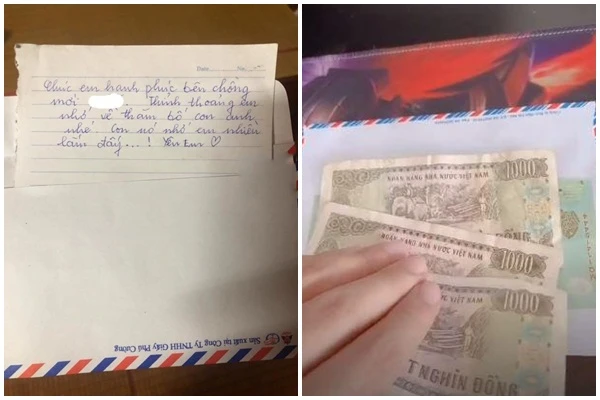 Date No
Chúc em hạnh phúc bên chồng
mới . Thỉnh thoảng em
nhớ về thăm bố con anh
nhé. Con nó nhớ em nhiều
lắm đấy...! Yêu Em ♡
Sản xuất tại Công Ty TNHH Giấy Phú Cường
1000
NGÂN HÀNG NHÀ NƯỚC VIỆT NAM
ĐỒNG
1000
NGÂN HÀNG NHÀ NƯỚC VIỆT NAM
1000
VIỆT NAM
T NGHÌN ĐỒNG